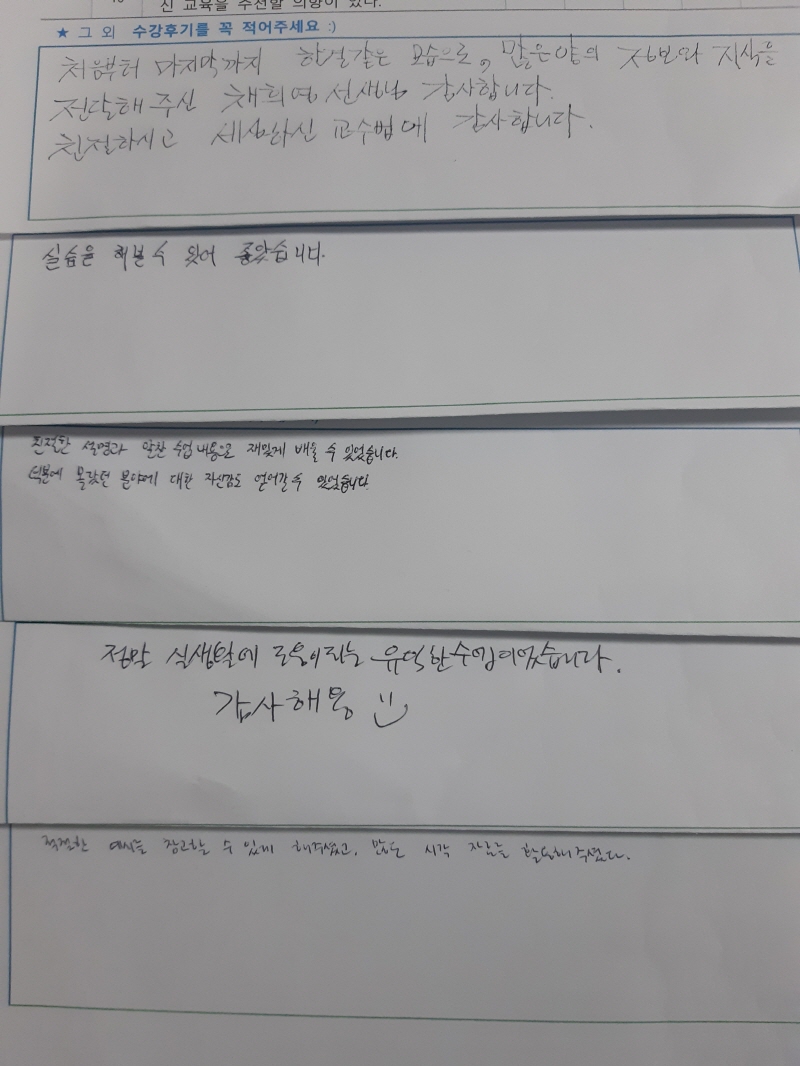 신 교육을 추천할 의향이 있다.
★ 그 외 수강후기를 꼭 적어주세요 :)
처음부터 마지막까지 한결같은 모습으로, 많은 양의 정보와 지식을
전달해 주신 채희영 선생님 감사합니다.
친절하시고 세심하신 교수법에 감사합니다.
실습을 해볼 수 있어 좋았습니다.
친절한 설명과 알찬 수업 내용으로 재밌게 배울 수 있었습니다.
덕분에 몰랐던 분야에 대한 자신감도 얻어갈 수 있었습니다.
정말 실생활에 도움이 되는 유익한 수업이었습니다.
감사해용 :)
적절한 예시를 참고할 수 있게 해주셨고, 많은 시각 자료를 활용해주셨다.